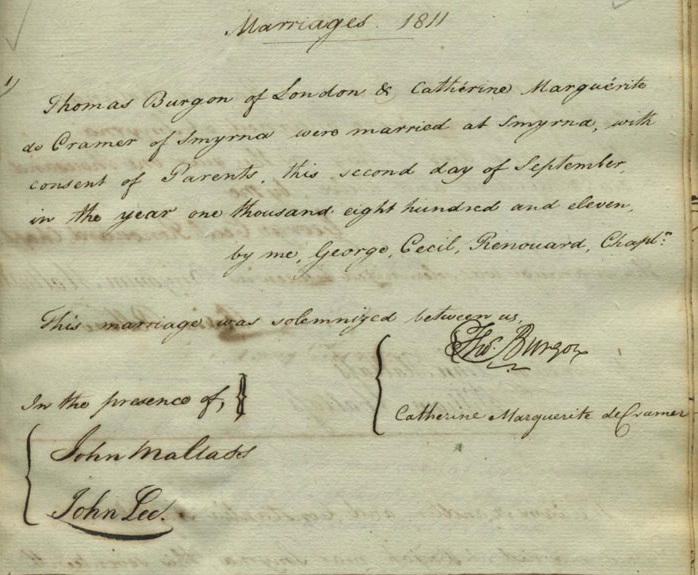 Marriages. 1811
1)
Thomas Burgon of London & Catherine Marguérite
de Cramer of Smyrna were married at Smyrna, with
consent of Parents, this second day of September,
in the year one thousand eight hundred and eleven,
by me, George, Cecil, Renouard, Chapln:
This marriage was solemnized between us,
Thos. Burgon
In the presence of,
Catherine Marguerite de Cramer
John Maltass
John Lee.